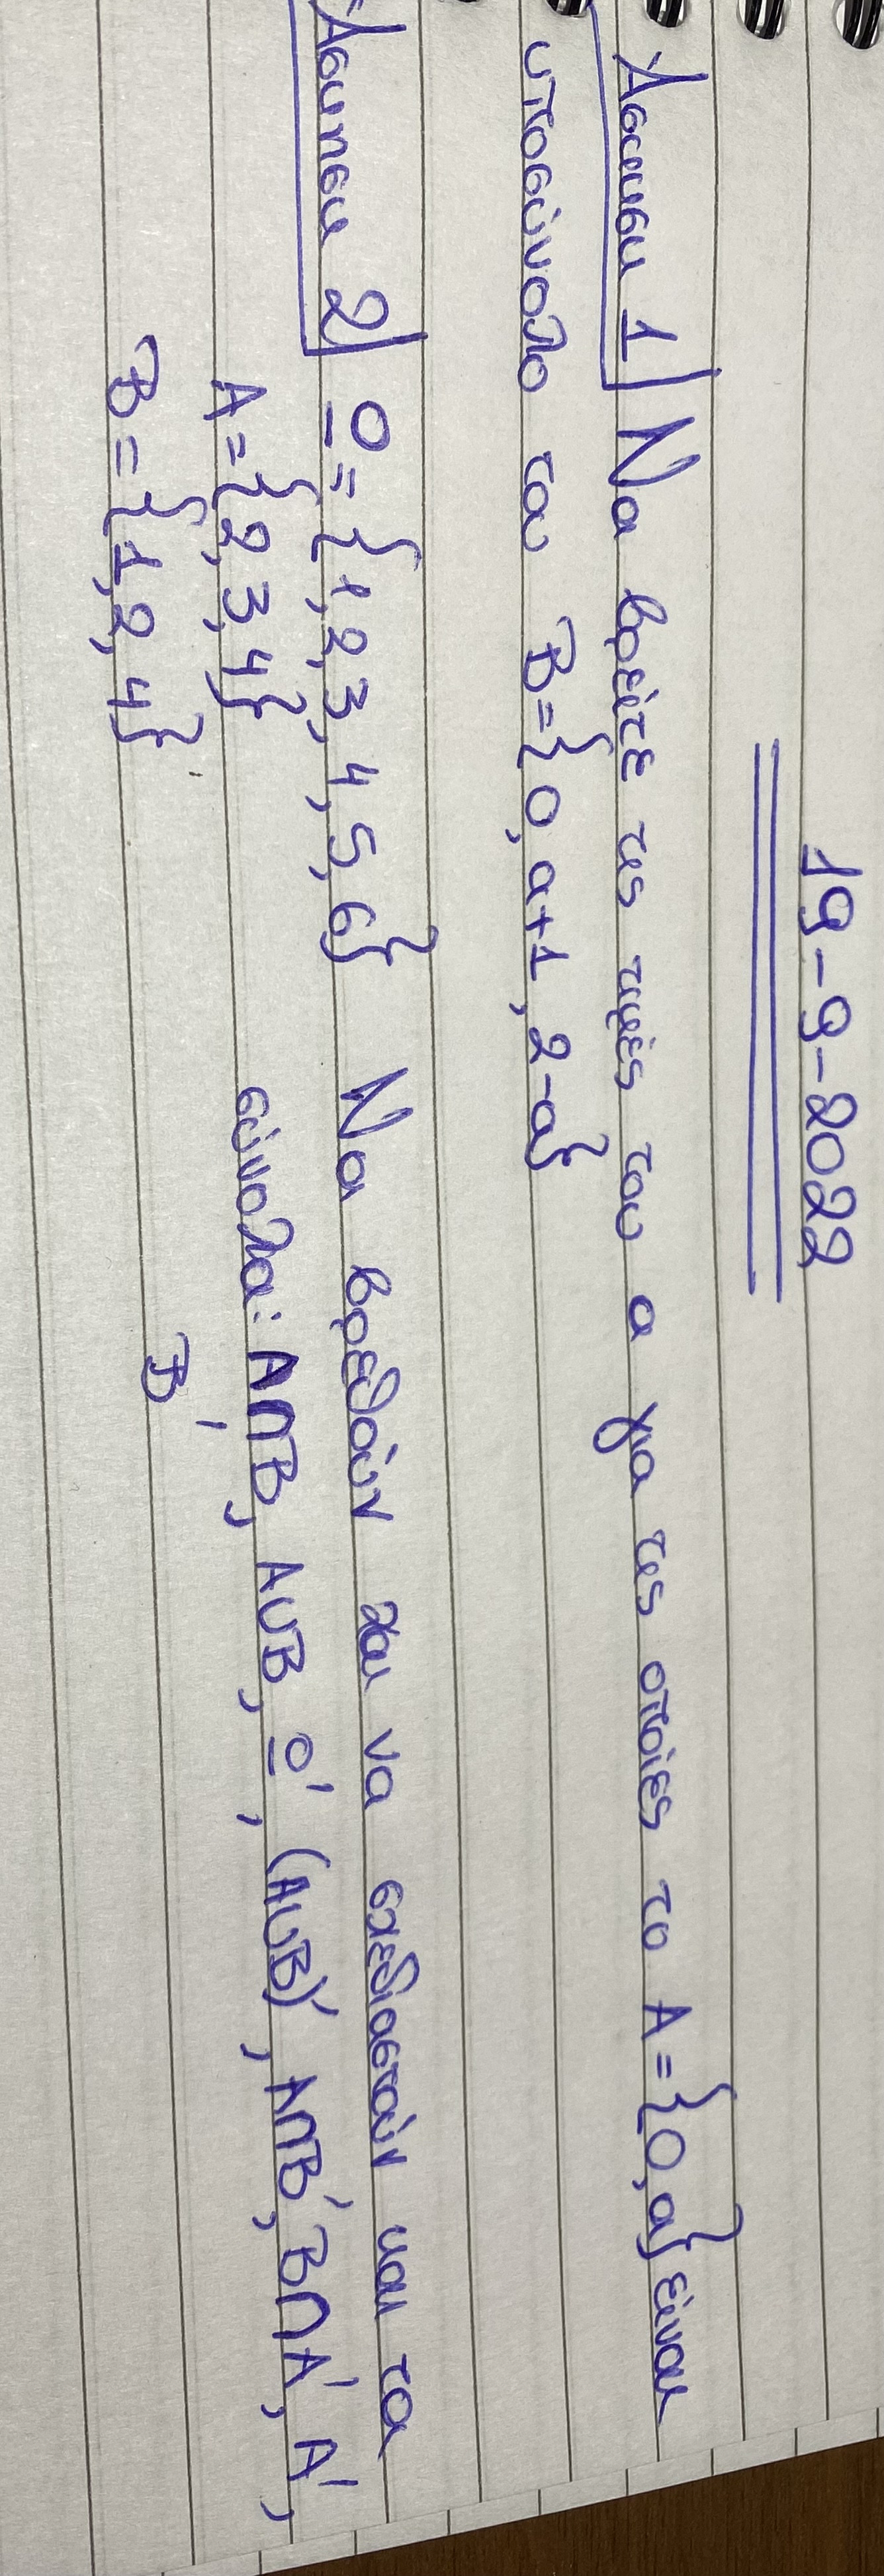 19-9-2022
Άσκηση 1 Να βρείτε τις τιμές του α για τις οποίες το A={0,α} είναι
υποσύνολο του B={0, α+1, 2-α}
Άσκηση 2 Ω={1,2,3,4,5,6} Να βρεθούν και να σχεδιαστούν και τα
A={2,3,4} σύνολα: A∩B, A∪B, Ω', (A∪B)', A∩B', B∩A', A',
B={1,2,4} B'